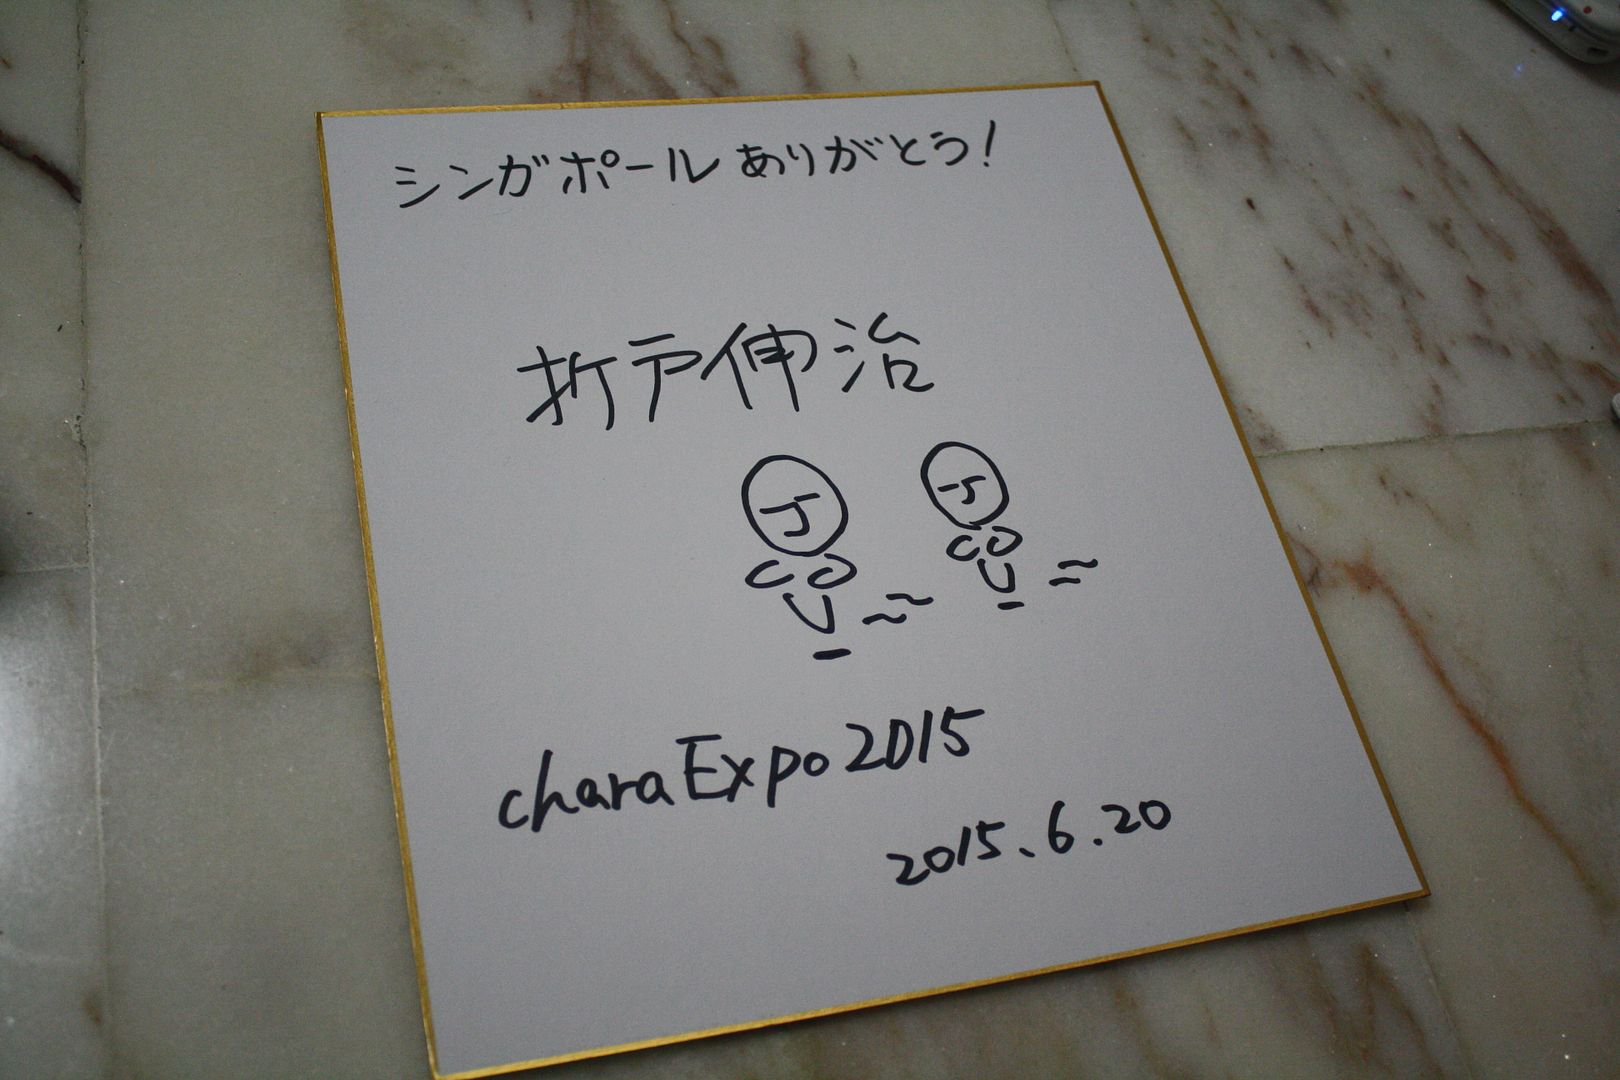 シンガポールありがとう!
折戸伸治
charaExpo2015
2015.6.20